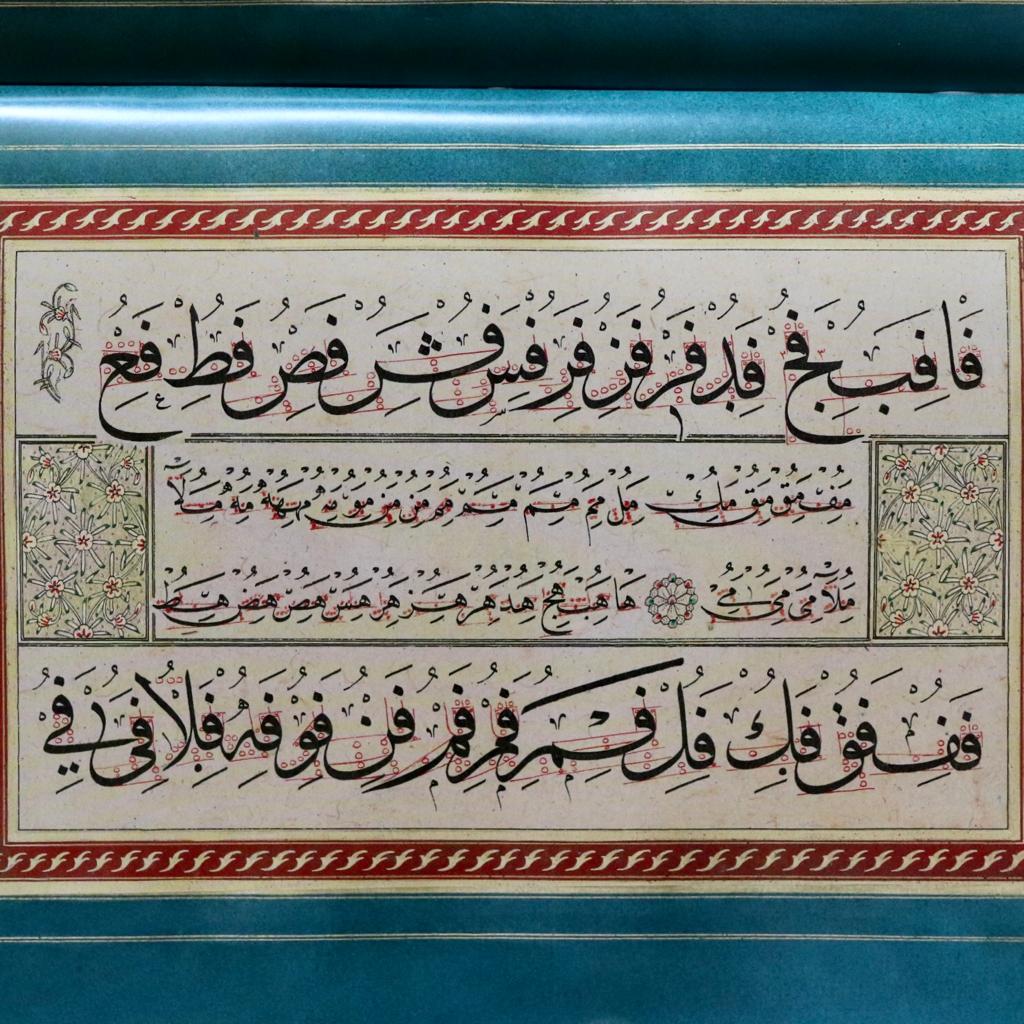 فا فب فج فد فر فز فر فس فش فص فط فع
مف مق مق مك مل مم مم مم مم من من مو مه مه مه ملا
ملا مى مى مى ها هب هج هد هر هر هر هس هص هض هط
فف فق فك فل فم فم فم فن فو فه فلا فى فى